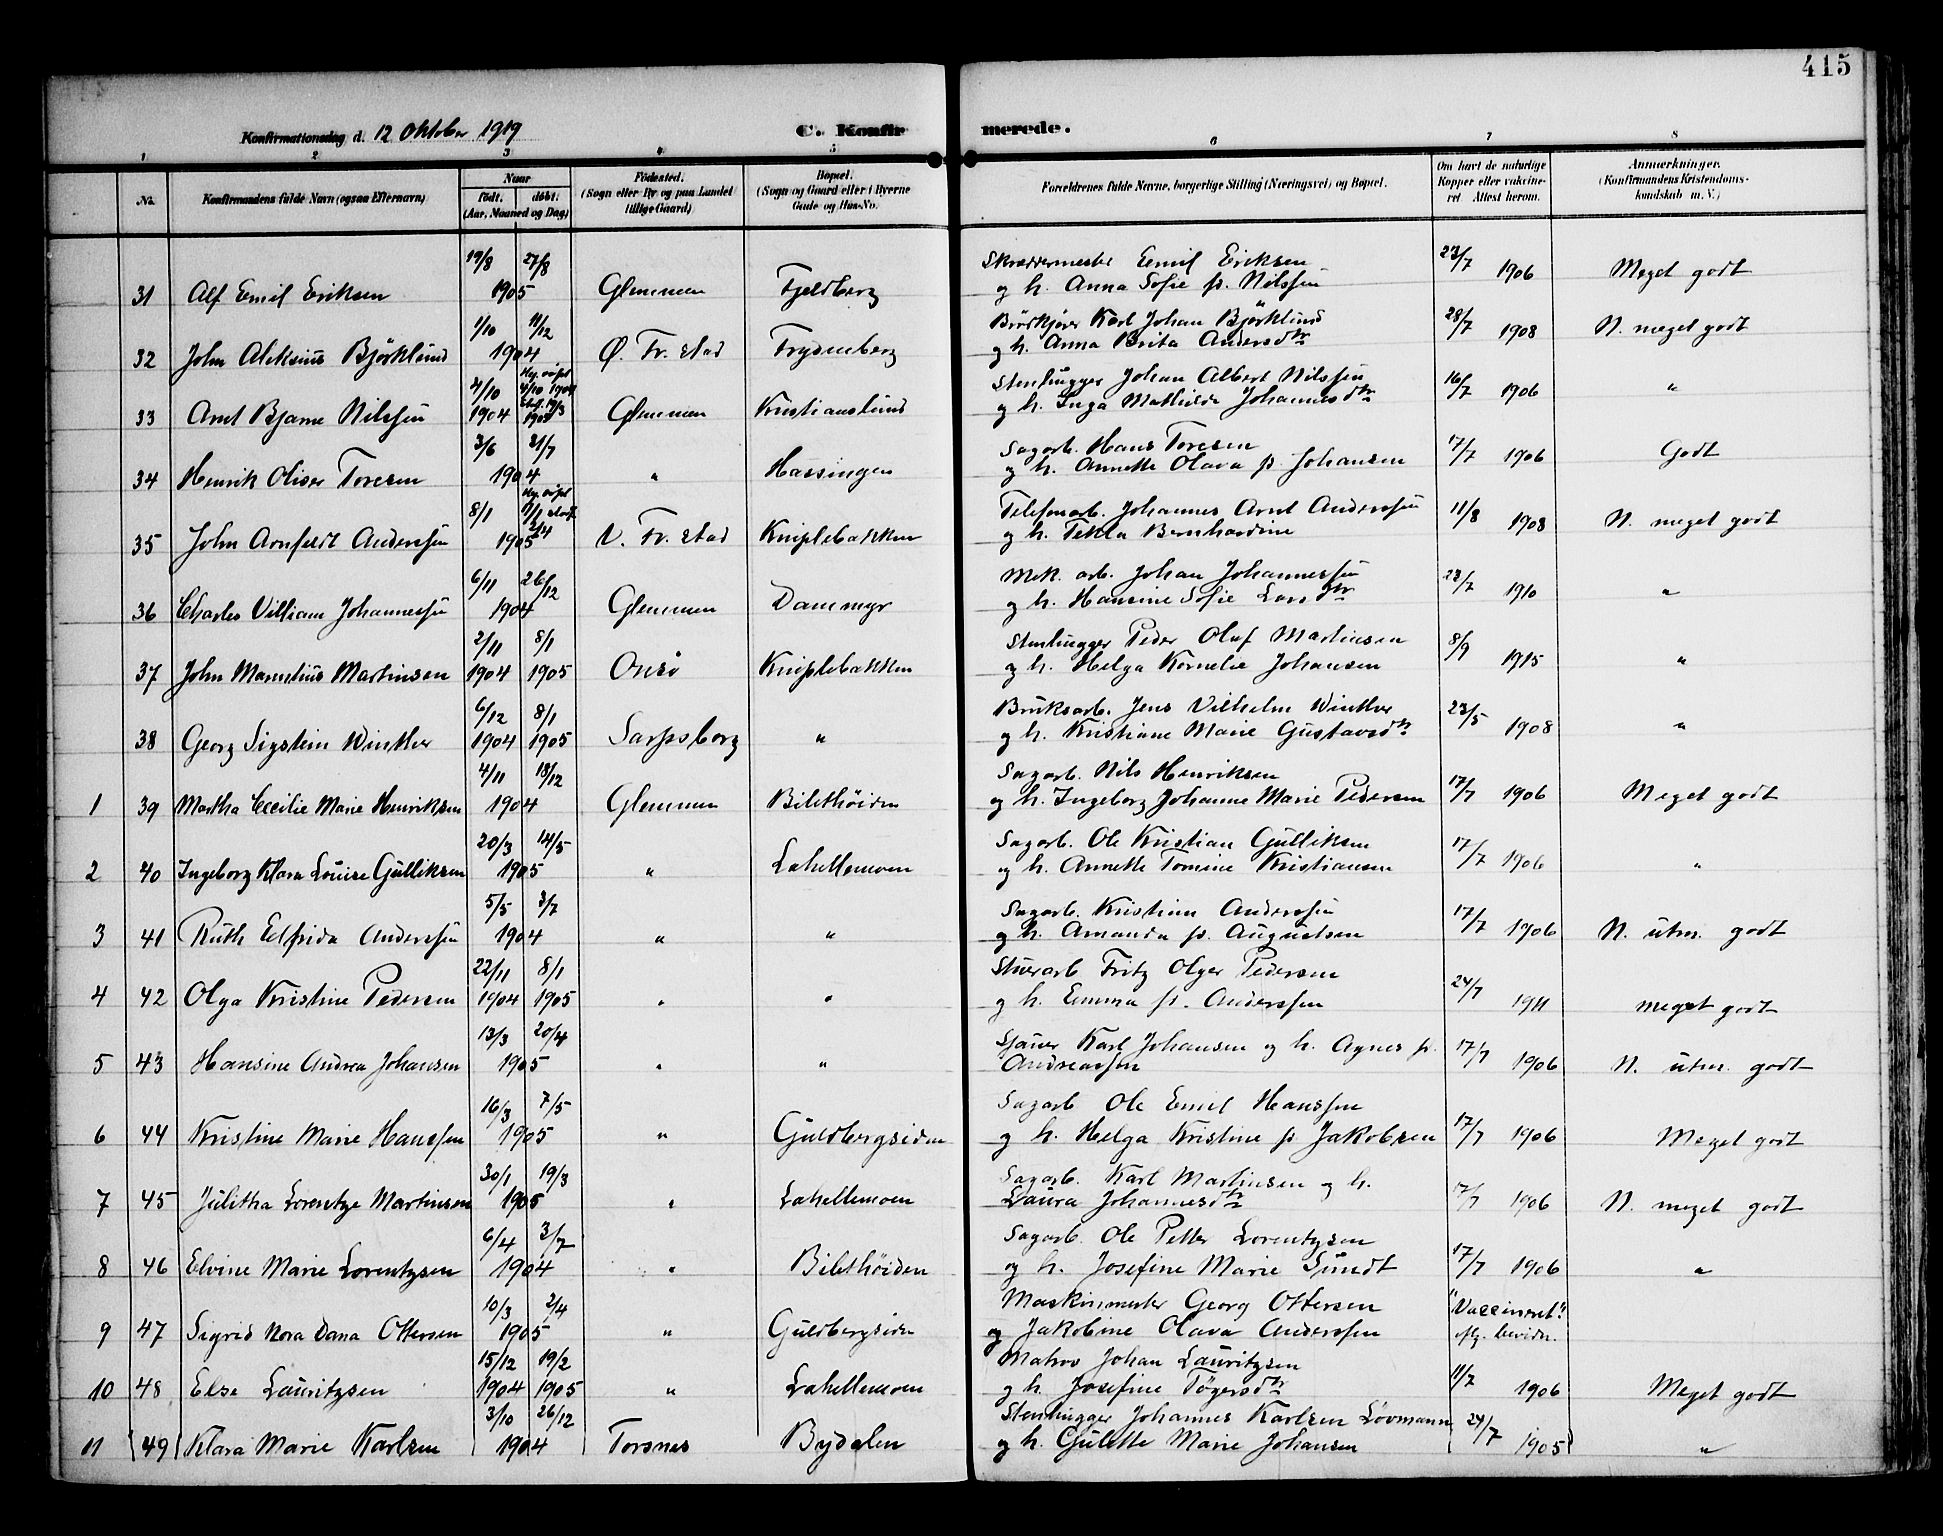 415
Konfirmationsdag d. 12 Oktober 1919
C. Konfirmerede.
1 2 3 4 5 6 7 8
No.
Konfirmandens fulde Navn (ogsaa Efternavn)
Naar
født. døbt.
(Aar, Maaned og Dag)
Fødested.
(Sogn eller By og paa Landet
tillige Gaard)
Bopæl.
(Sogn og Gaard eller i Byerne
Gade og Hus-No.
Forældrenes fulde Navne, borgerlige Stilling (Næringsvei) og Bopæl.
Om havt de naturlige
Kopper eller vakcine-
ret Attest herom.
Anmærkninger.
(Konfirmandens Kristendoms-
kundskab m. V.)
19/8 27/8 Skræddermester Emil Eriksen 23/7
31 Alf Emil Eriksen 1905 Glemmen Fjeldberg og h. Anna Sofie f. Nilssen 1906 Meget godt
1/10 11/12 Brødkjører Karl Johan Björklund 28/7
32 John Aleksius Björklund 1904 Ø. Fr.stad Frydenberg og h. Anna Brita Andersdtr 1908 N. meget godt
4/10 Hj. døpt 4/10 1904 Stenhugger Johan Albert Nilssen 16/7
33 Arnt Bjarne Nilssen 1904 19/3 1905 Glemmen Kristianslund og h. Inga Mathilde Johannesdtr 1906 "
3/6 31/7 Sagarb. Hans Toresen 17/7
34 Henrik Oliver Toresen 1904 " Hassingen og h. Annette Olava f. Johansen 1906 Godt
8/1 Hj. døpt 11/1 2/4 Telefonarb. Johannes Arnt Anderssen 11/8
35 John Arnfeldt Anderssen 1905 V. Fr.stad Kniplebakken og h. Tekla Bernhardine 1908 N. meget godt
6/11 26/12 Mek. arb. Johan Johannessen 23/7
36 Charles Villiam Johannessen 1904 Glemmen Dammyr og h. Hansine Sofie Larsdtr 1910 "
2/11 8/1 Stenhugger Peder Oluf Martinsen 8/9
37 John Manntius Martinsen 1904 1905 Onsö Kniplebakken og h. Helga Kornelie Johansen 1915 "
6/12 8/1 Bruksarb. Jens Vilhelm Winther 23/5
38 Georg Sigstein Winther 1904 1905 Sarpsborg " og h. Kristiane Marie Gustavsdtr 1908 "
4/11 18/12 Sagarb. Nils Henriksen 17/7
1 39 Martha Cecilie Marie Henriksen 1904 Glemmen Bilethöiden og h. Ingeborg Johanne Marie Pedersen 1906 Meget godt
20/3 14/5 Sagarb. Ole Kristian Gulliksen 17/7
2 40 Ingeborg Klara Louise Gulliksen 1905 " Lahellemoen og h. Annette Tomine Kristiansen 1906 "
5/5 3/7 Sagarb. Kristian Anderssen 17/7
3 41 Ruth Elfrida Anderssen 1904 " " og h. Amanda f. Augustsen 1906 N. utm. godt
22/11 8/1 Stuerarb Fritz Olger Pedersen 24/7
4 42 Olga Kristine Pedersen 1904 1905 " " og h. Emma f. Anderssen 1911 meget godt
13/3 20/4 Sjauer Karl Johansen og h. Agnes f. 17/7
5 43 Hansine Andrea Johansen 1905 " " Andreassen 1906 N. utm. godt
16/3 7/5 Sagarb Ole Emil Hanssen
6 44 Kristine Marie Hanssen 1905 " Guldbergsiden og h. Helga Kristine f Jakobsen 17/7 1906 Meget godt
30/1 19/3 Sagarb. Karl Martinsen og h.
7 45 Julitha Lorentze Martinsen 1905 " Lahellemoen Laura Johannesdtr 17/7 1906 N. meget godt
6/4 3/7 Sagarb. Ole Petter Lorentzsen
8 46 Elvine Marie Lorentzsen 1904 " Bilethöiden og h. Josefine Marie Sundt 17/7 1906 "
10/3 2/4 Maskinmester Georg Ottersen "Vaccineret".
9 47 Sigrid Nora Dana Ottersen 1905 " Guldbergsiden og Jakobine Olava Anderssen eftg. bevidn.
15/12 19/2 Matros Johan Lauritzsen 11/7
10 48 Else Lauritzsen 1904 1905 " Lahellemoen og h Josefine Tögersdtr 1906 Meget godt
3/10 26/12 Stenhugger Johannes Karlsen Lövmann 24/7
11 49 Klara Marie Karlsen 1904 Torsnes Bydalen og h. Gulette Marie Johansen 1905 "